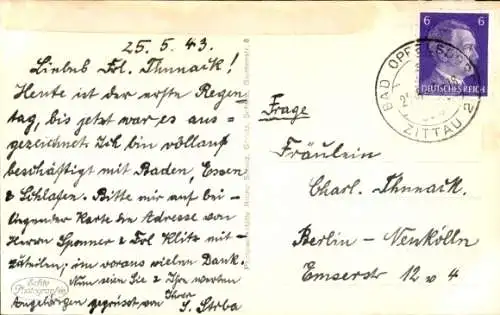 25. 5. 43.
Liebes Frl. Thunack!
Heute ist der erste Regen
tag, bis jetzt war es aus-
gezeichnet. Ich bin vollauf
beschäftigt mit Baden, Essen
& Schlafen. Bitte mir auf bei-
liegender Karte die Adresse von
Herrn Sponner & Frl Klitz mit-
zuteilen; im voraus vielen Dank.
Nun seien Sie & Ihre werten
Angehörigen gegrüsst von Ihrer
S. Strba
Echte
Photographie
6 6
DEUTSCHES REICH
BAD OPPELSDORF
ZITTAU 2
Frage
Fräulein
Charl. Thunack.
Berlin - Neukölln
Emserstr 12 v 4